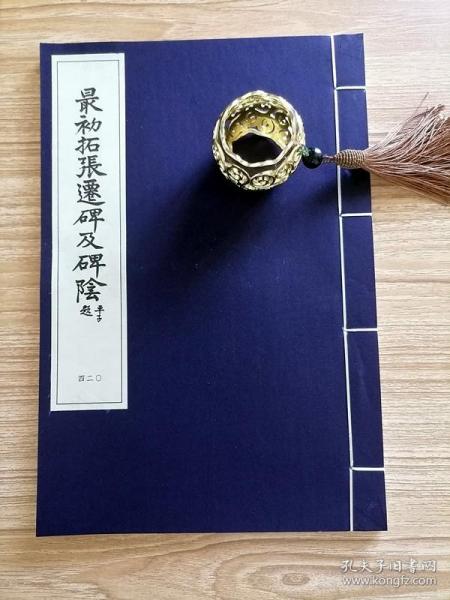 最初拓張遷碑及碑陰
平子
題
四二〇
孔夫子旧书网
www.kongfz.com